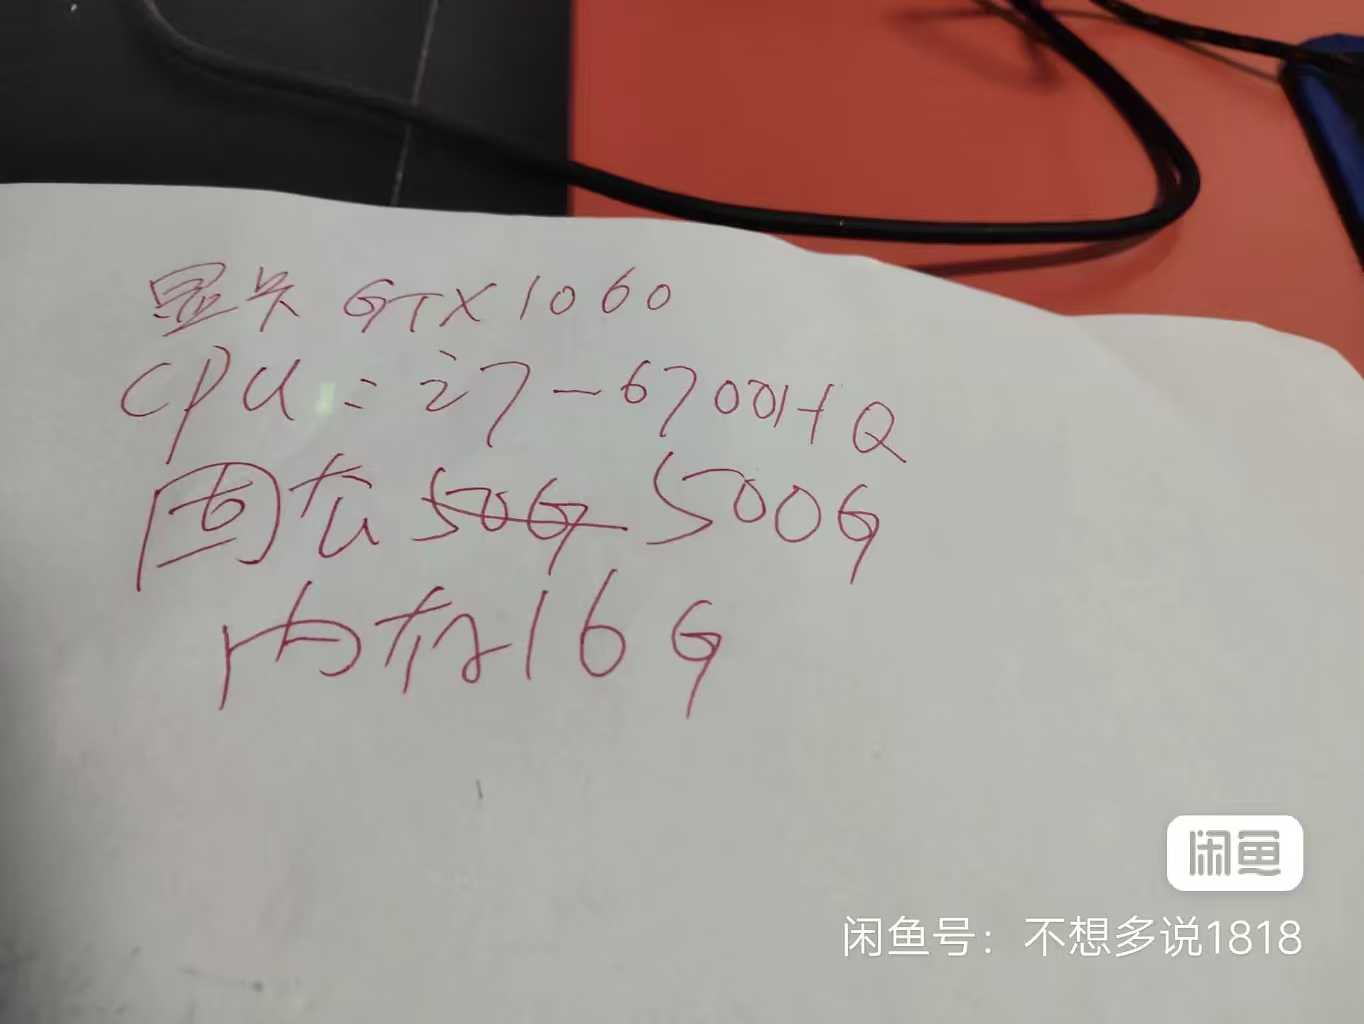 显卡 GTX1060
CPU: i7-6700HQ
固态 50G 500G
内存16G
闲鱼
闲鱼号：不想多说1818